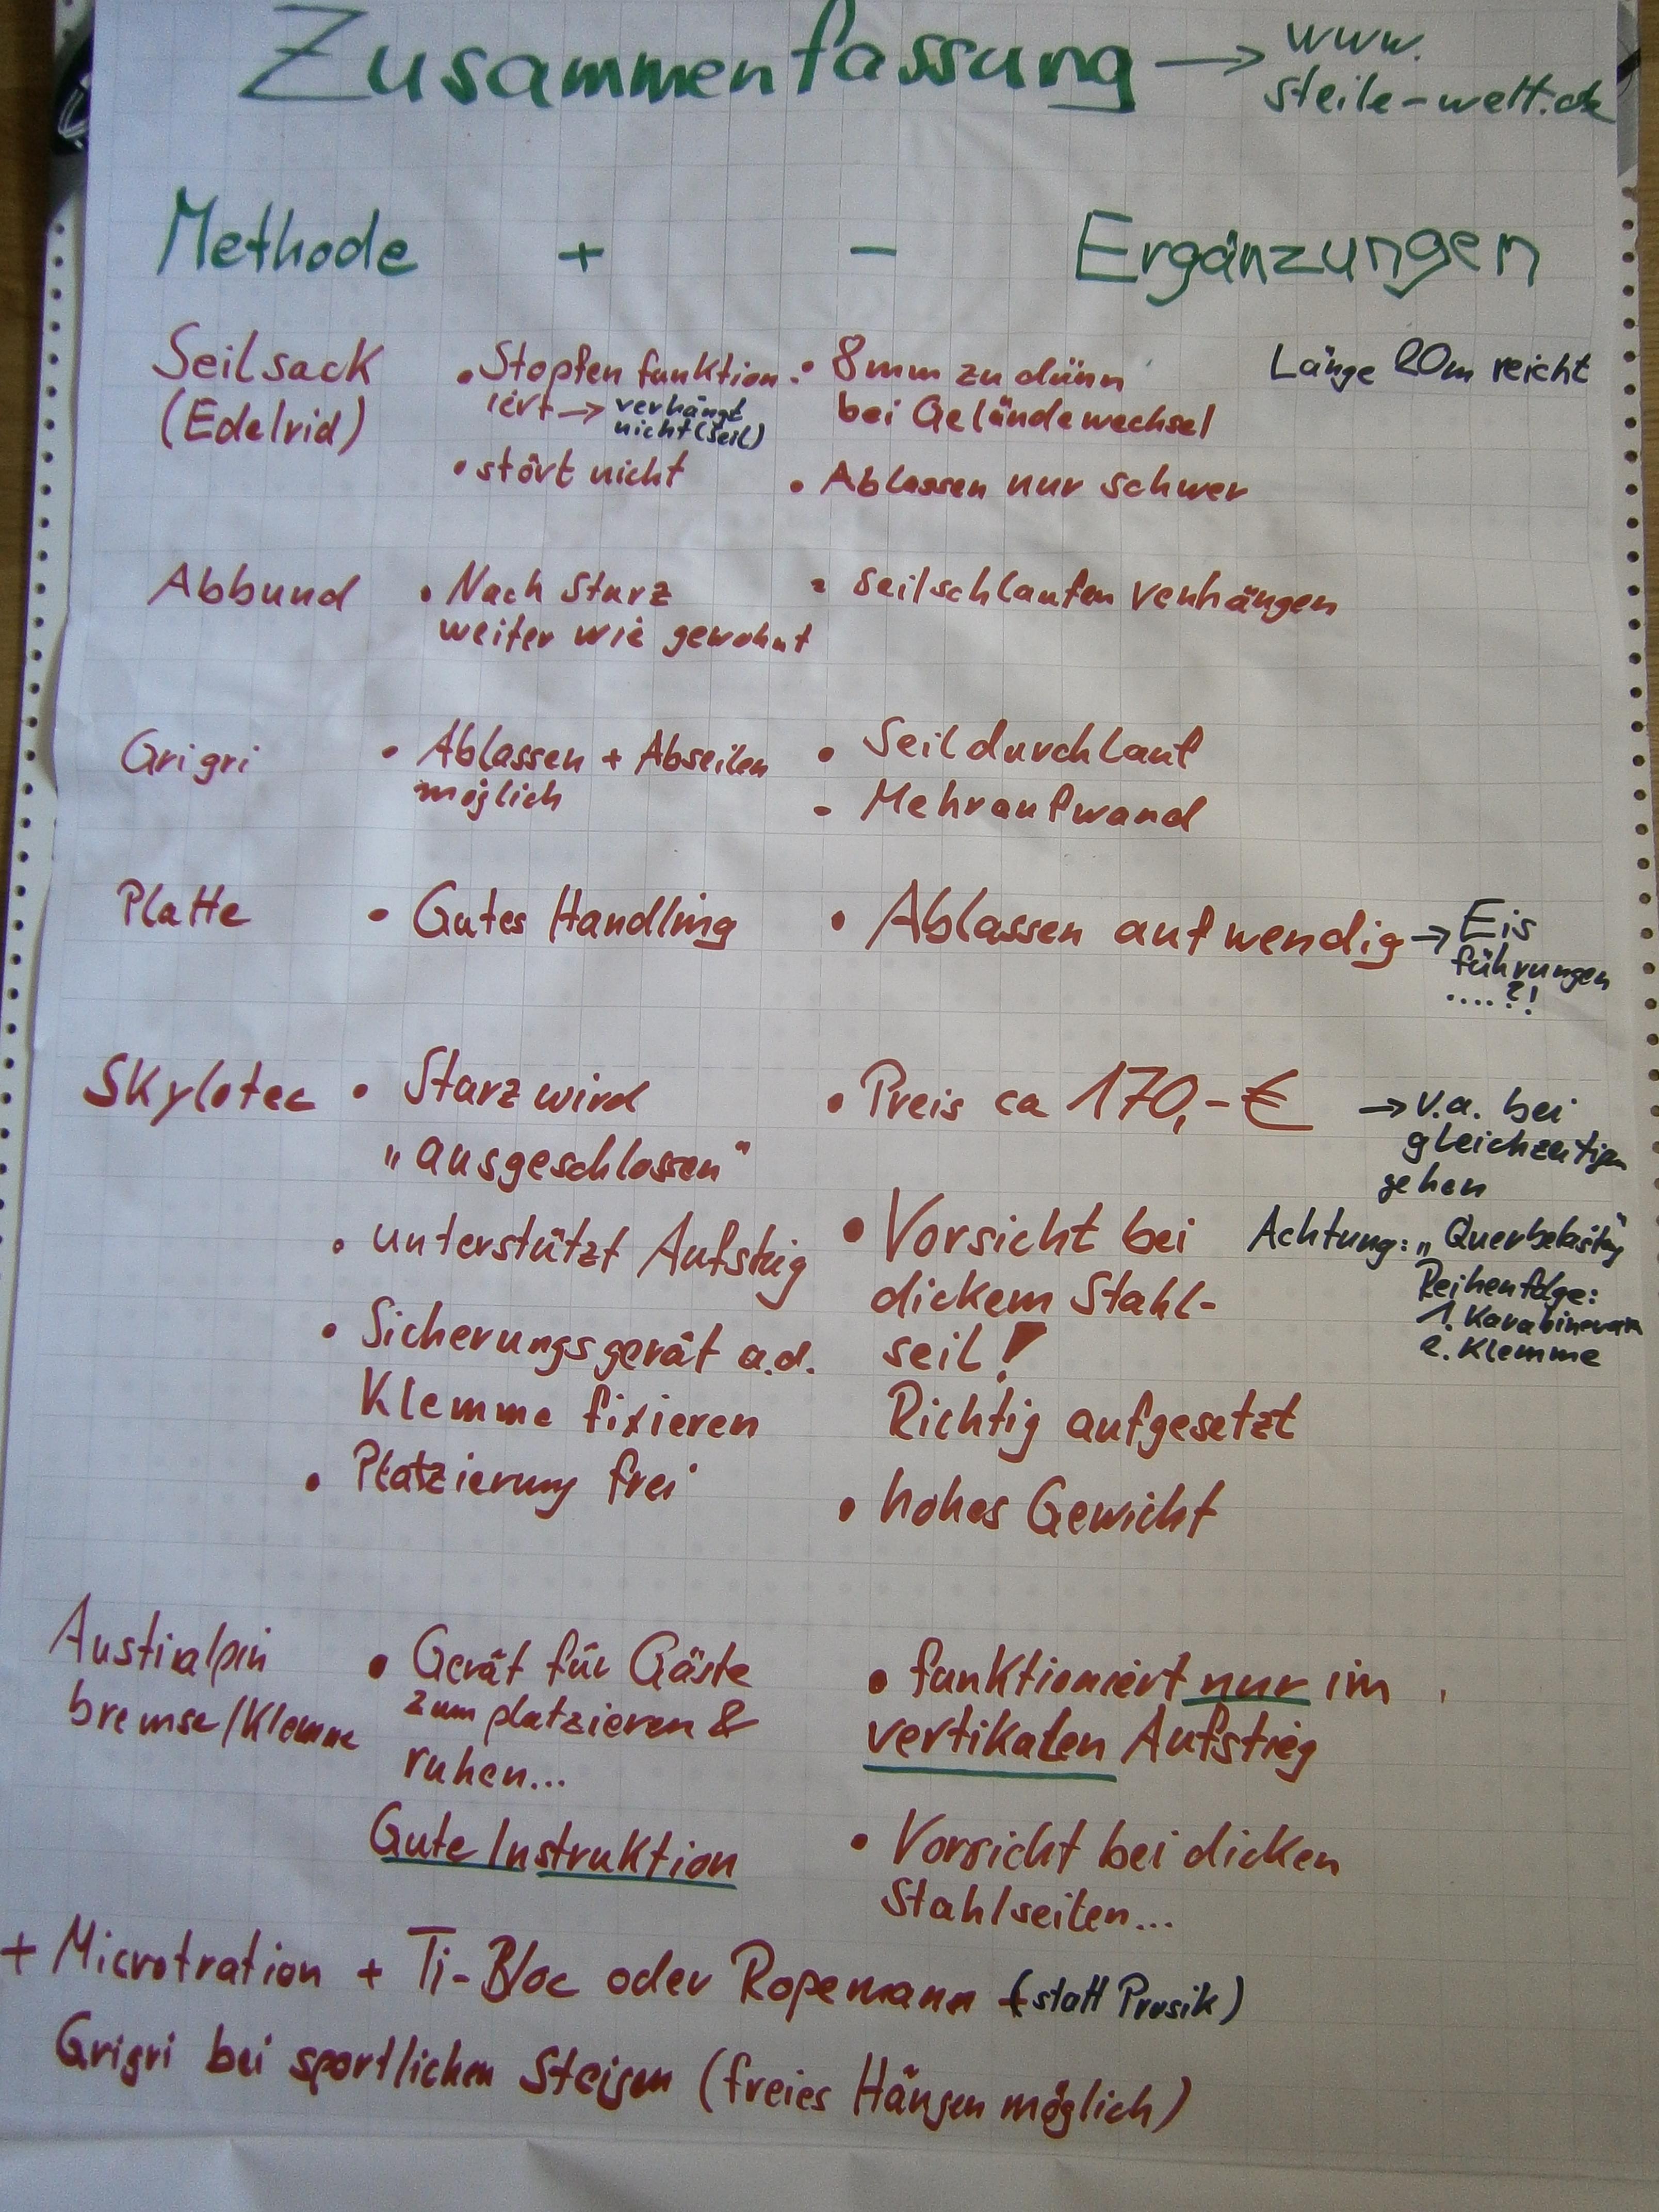 Zusammenfassung → www.
steile-welt.de
Methode + - Ergänzungen
Seilsack
(Edelrid)
• Stopfen funktion.
iert → verhängt
nicht (Seil)
• stört nicht
• 8mm zu dünn
bei Geländewechsel
• Ablassen nur schwer
Länge 20m reicht
Abbund
• Nach Sturz
weiter wie gewohnt
• Seilschlaufen verhängen
Grigri
• Ablassen + Abseilen
möglich
• Seildurchlauf
- Mehraufwand
Platte
• Gutes Handling
• Ablassen aufwendig → Eis
führungen
....?!
Skylotec
• Sturz wird
„ausgeschlossen"
• unterstützt Aufstieg
• Sicherungsgerät a.d.
Klemme fixieren
• Platzierung frei
• Preis ca 170,- €
→ v.a. bei
gleichzeitigen
gehen
• Vorsicht bei
dickem Stahl-
seil!
Richtig aufgesetzt
• hohes Gewicht
Achtung: „Querbelastung"
Reihenfolge:
1.
2. Klemme
Austrialpin
bremse/Klemme
• Gerät für Gäste
zum platzieren &
ruhen...
Gute Instruktion
• funktioniert nur im
vertikalen Aufstieg
• Vorsicht bei dicken
Stahlseilen...
+ Microtration + Ti-Bloc oder Ropemann (statt Prusik)
Grigri bei sportlichen Steigen (freies Hängen möglich)